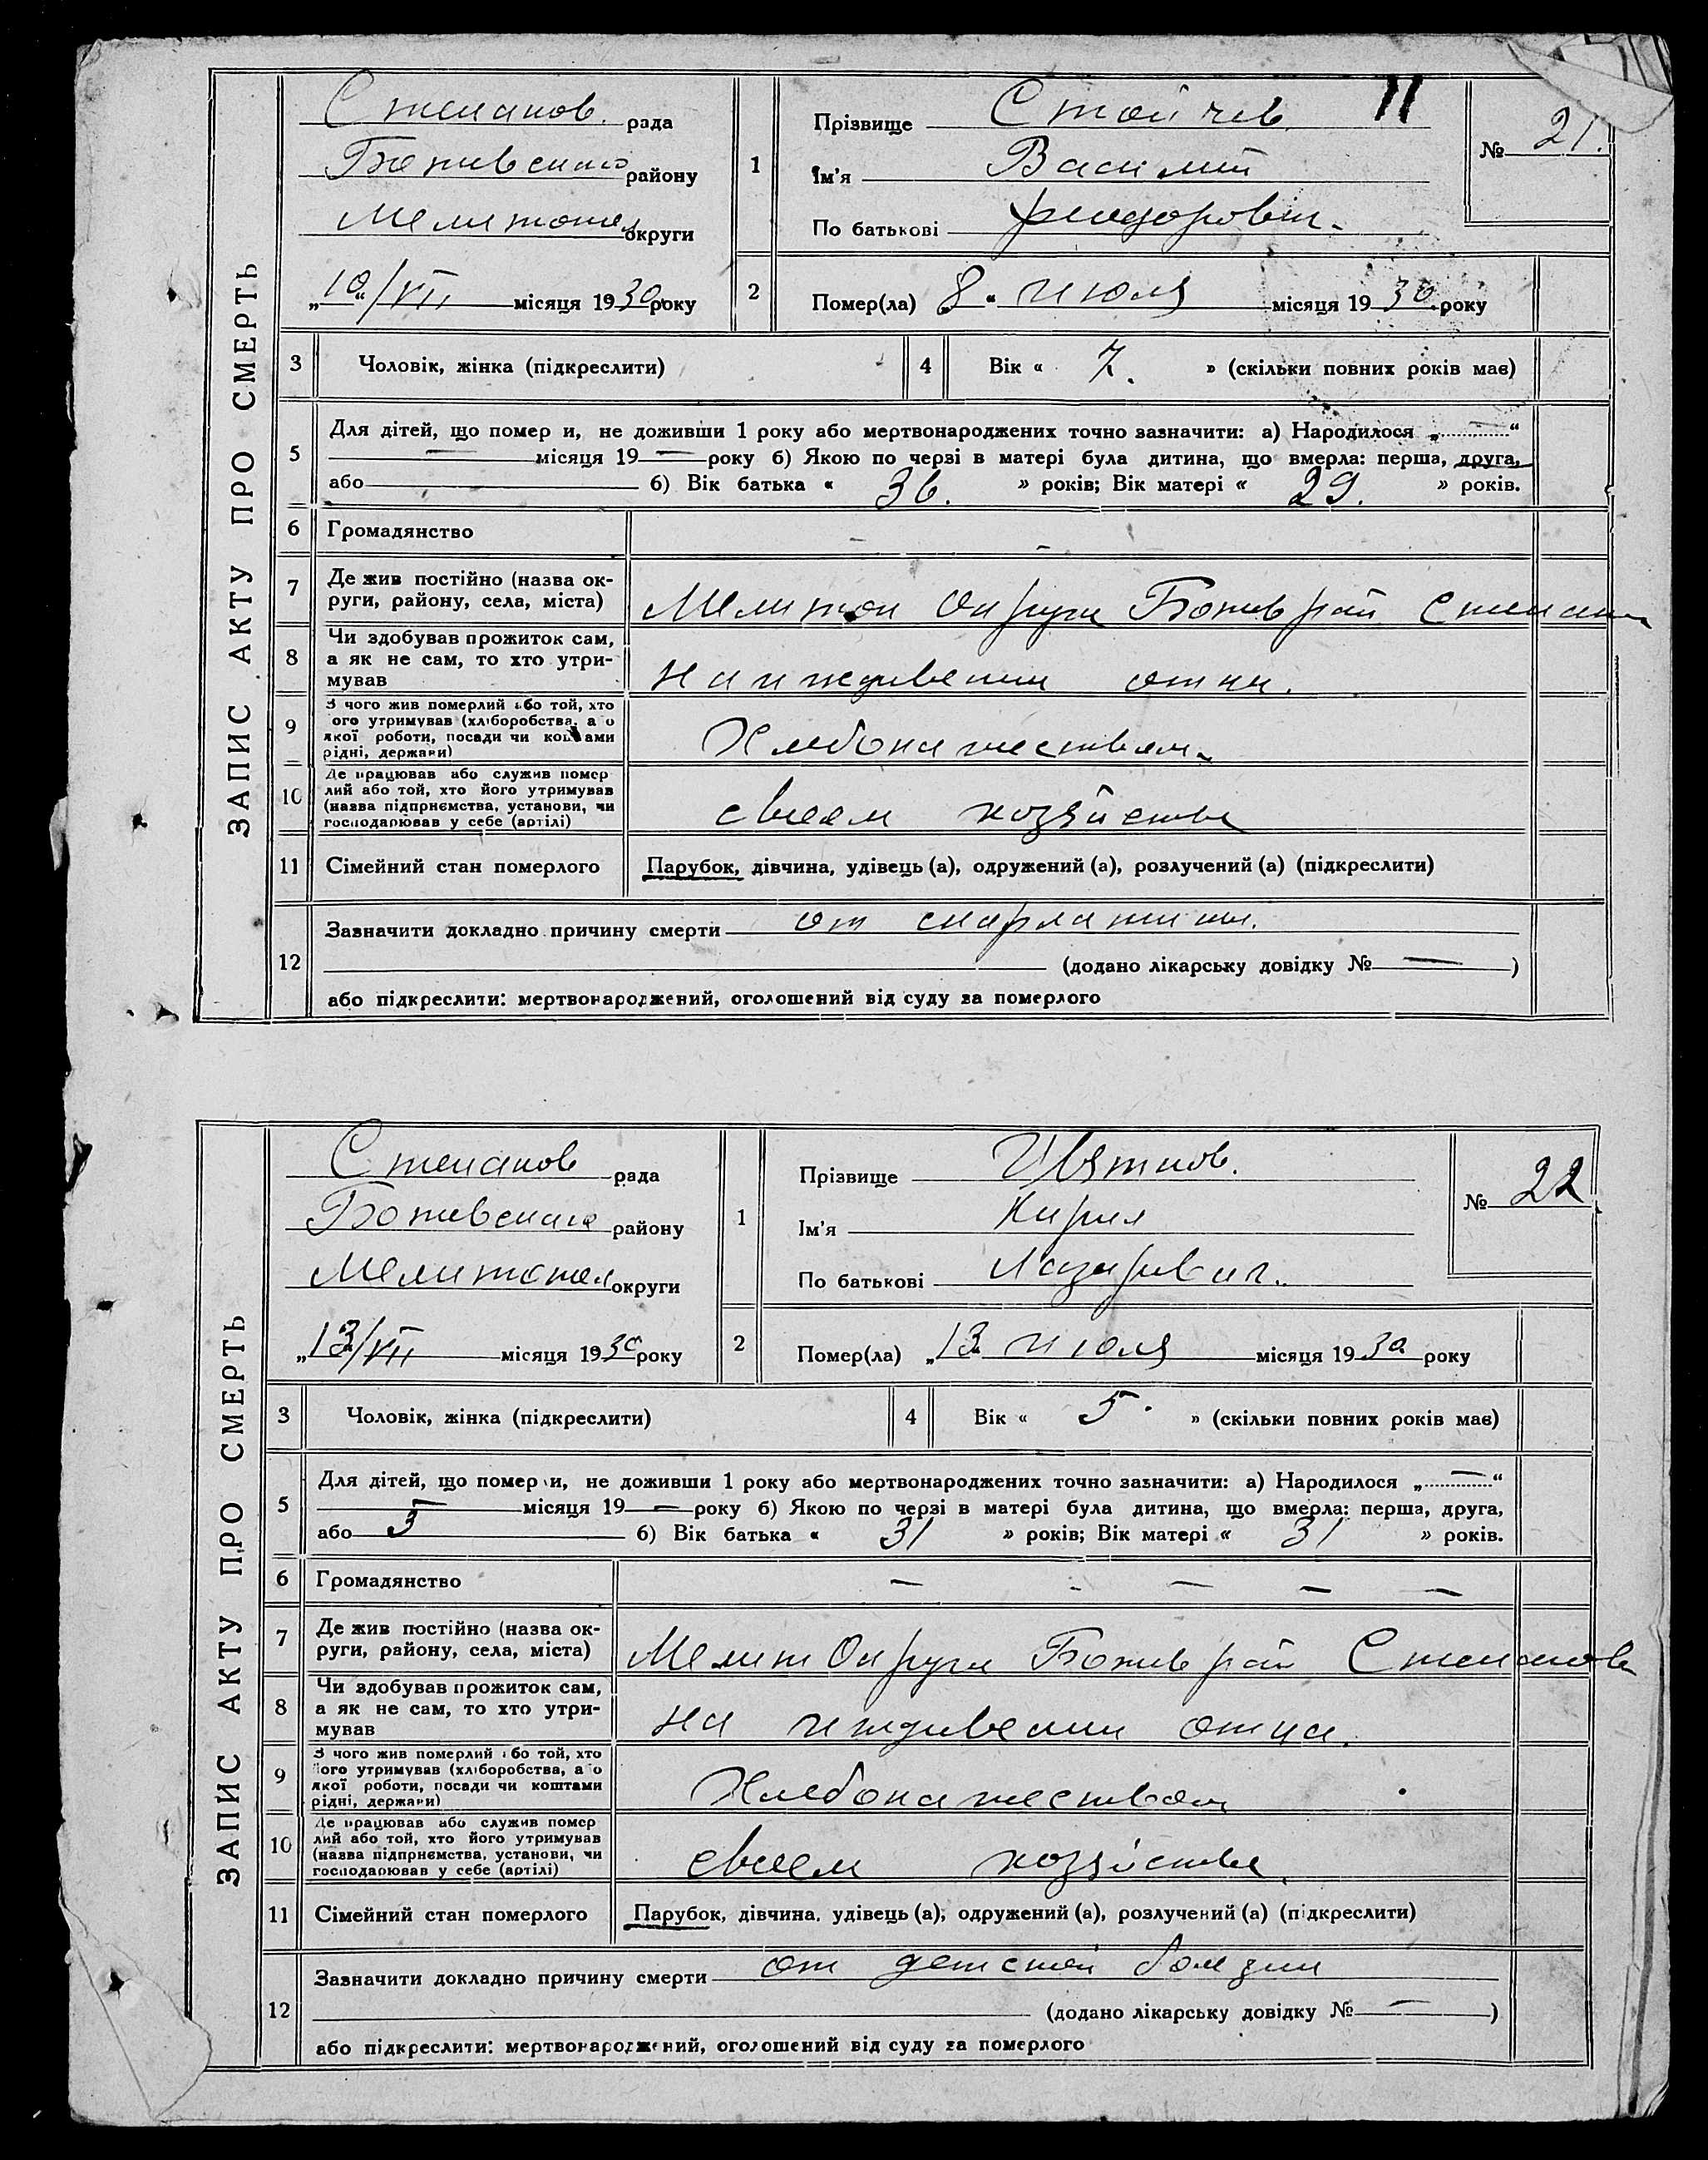 ЗАПИС АКТУ ПРО СМЕРТЬ
11
Степанов. рада
Ботивского району
Мелитопол округи
„10“/VII місяця 1930 року
1 Прізвище Стойчев
Ім'я Василий
По батькові Феодорович.
№ 21.
2 Помер(ла) 8 “ июля місяця 1930 року
3 Чоловік, жінка (підкреслити)
4 Вік « 7. » (скільки повних років має)
5 Для дітей, що помер и, не доживши 1 року або мертвонароджених точно зазначити: а) Народилося „ — “
— місяця 19 — року б) Якою по черзі в матері була дитина, що вмерла: перша, друга,
або б) Вік батька « 36. » років; Вік матері « 29. » років.
6 Громадянство – –
7 Де жив постійно (назва ок-
руги, району, села, міста) Мелитоп Округи Ботив рай Степан
8 Чи здобував прожиток сам,
а як не сам, то хто утри-
мував На иждивении отца.
9 З чого жив померлий або той, хто
ого утримував (хліборобства, а о
якої роботи, посади чи коштами
рідні, держави) Хлебопашеством
10 Де працював або служив помер
лий або той, хто його утримував
(назва підприємства, установи, чи
господарював у себе (артілі) своем хозяйстве
11 Сімейний стан померлого Парубок, дівчина, удівець (а), одружений (а), розлучений (а) (підкреслити)
12 Зазначити докладно причину смерти от скарлатины.
(додано лікарську довідку № — )
або підкреслити: мертвонароджений, оголошений від суду за померлого
ЗАПИС АКТУ ПРО СМЕРТЬ
Степанов рада
Ботивского району
Мелитопол округи
„13/VII місяця 1930 року
1 Прізвище Ивятков.
Ім'я Кирил
По батькові Лазаревич.
№ 22
2 Помер(ла) „13 июля місяця 1930 року
3 Чоловік, жінка (підкреслити)
4 Вік « 5. » (скільки повних років має)
5 Для дітей, що помер и, не доживши 1 року або мертвонароджених точно зазначити: а) Народилося „ — “
— місяця 19 — року б) Якою по черзі в матері була дитина, що вмерла: перша, друга,
або 3 б) Вік батька « 31 » років; Вік матері « 31 » років.
6 Громадянство – – – – –
7 Де жив постійно (назва ок-
руги, району, села, міста) Мелит Округи Ботив рай Степановк
8 Чи здобував прожиток сам,
а як не сам, то хто утри-
мував на иждивении отца.
9 З чого жив померлий або той, хто
його утримував (хліборобства, а о
якої роботи, посади чи коштами
рідні, держави) Хлебопашеством
10 Де працював або служив помер
лий або той, хто його утримував
(назва підприємства, установи, чи
господарював у себе (артілі) своем хозяйстве
11 Сімейний стан померлого Парубок, дівчина, удівець (а), одружений (а), розлучений (а) (підкреслити)
12 Зазначити докладно причину смерти от детской болезни
(додано лікарську довідку № — )
або підкреслити: мертвонароджений, оголошений від суду за померлого